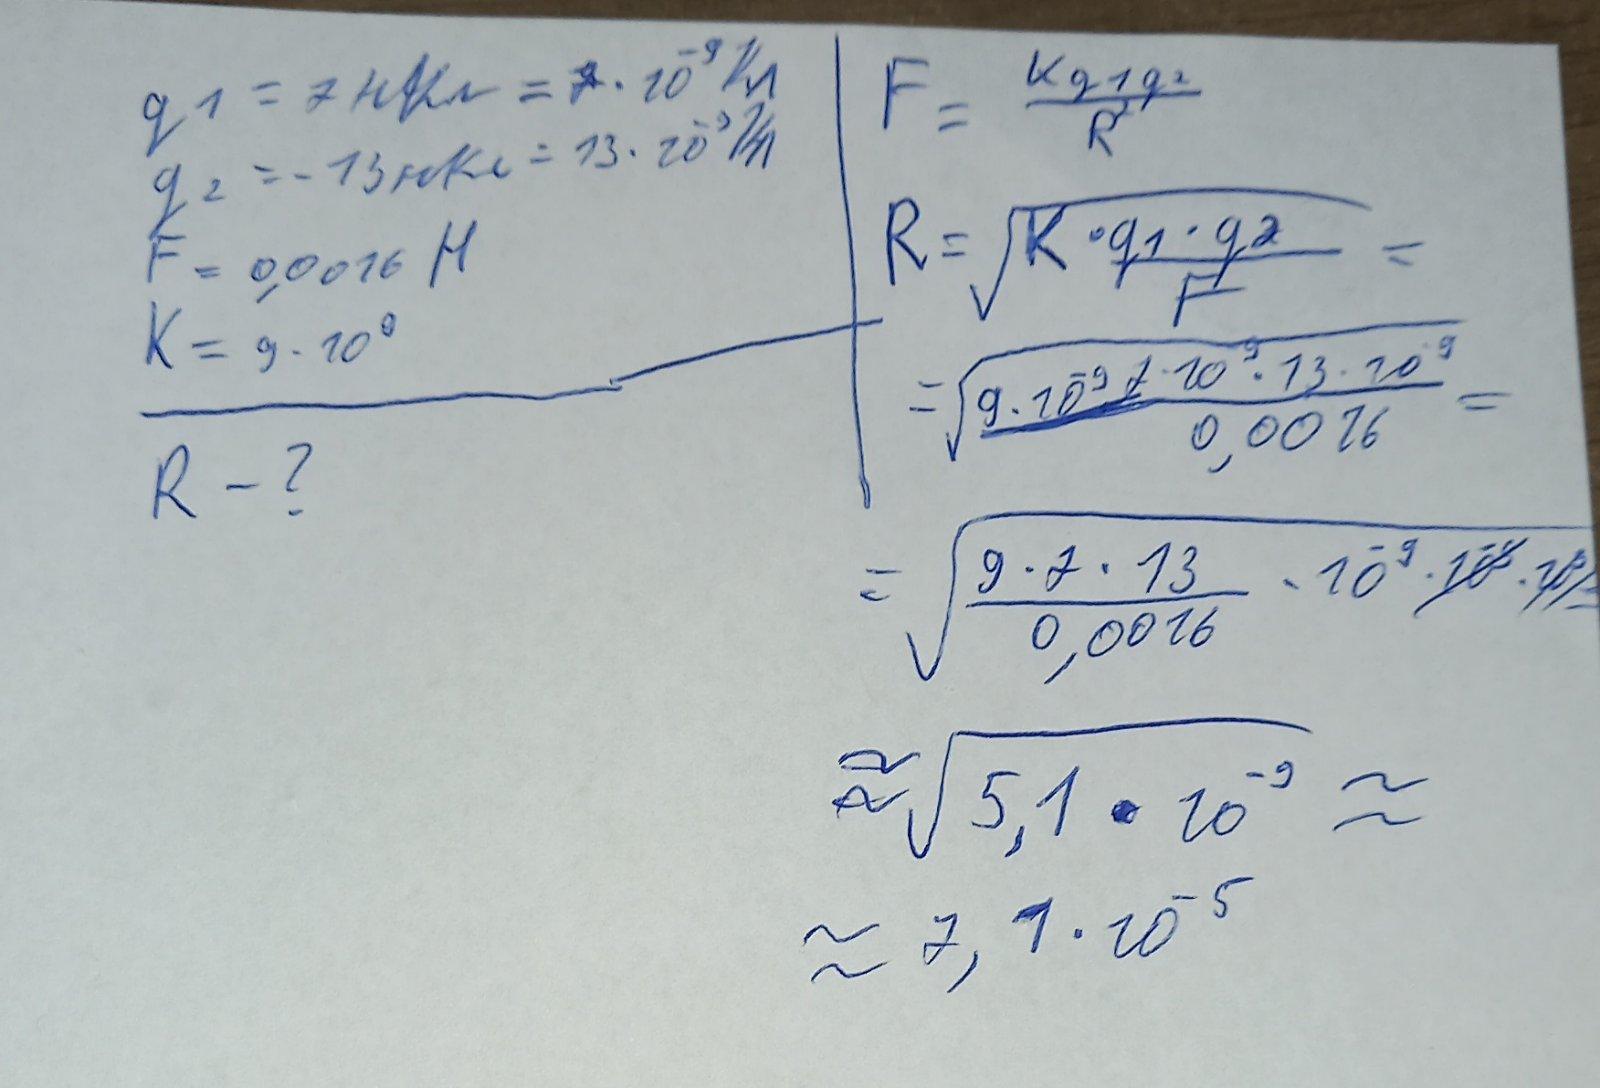 q1 = 7 нКл = 7·10⁻⁹ Кл
q2 = -13 нКл = 13·10⁻⁹ Кл
F = 0,0016 Н
K = 9·10⁹
R - ?
F = Kq1q2 / R²
R = √(K·q1·q2 / F) =
= √(9·10⁻⁹ 7·10⁻⁹·13·10⁻⁹ / 0,0016) =
= √(9·7·13 / 0,0016 · 10⁻⁹
≈ √(5,1·10⁻⁹) ≈
≈ 7,1·10⁻⁵